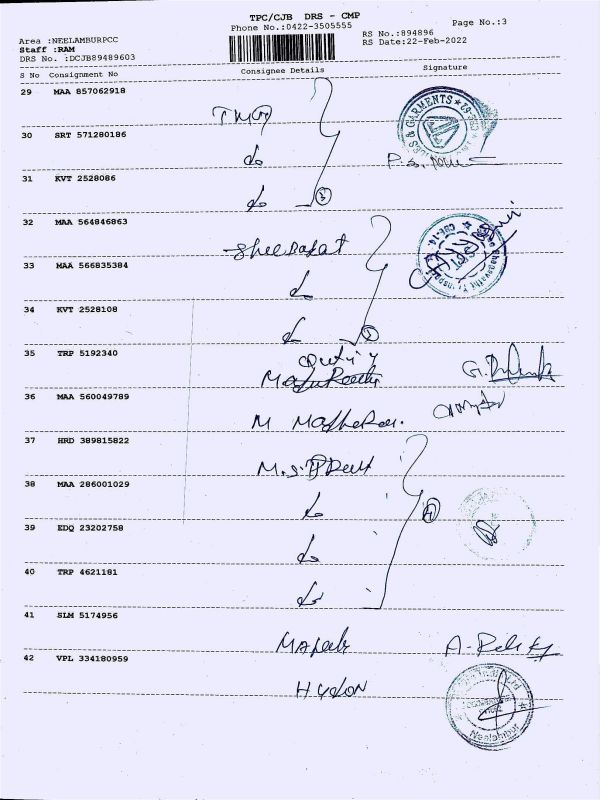 TPC/CJB DRS - CMP
Phone No.:0422-3505555
Page No.:3
Area :NEELAMBURPCC
RS No.:894896
Staff :RAM
RS Date:22-Feb-2022
DRS No. :DCJB89489603
S No Consignment No Consignee Details Signature
29 MAA 857062918
& GARMENTS
30 SRT 571280186
do
31 KVT 2528086
do 3
32 MAA 564846863
33 MAA 566835384
do
34 KVT 2528108
do 3
35 TRP 5192340
36 MAA 560049789
M
37 HRD 389815822
M.S.P
38 MAA 286001029
do 4
39 EDQ 23202758
do
40 TRP 4621181
do
41 SLM 5174956
42 VPL 334180959
Neelambur